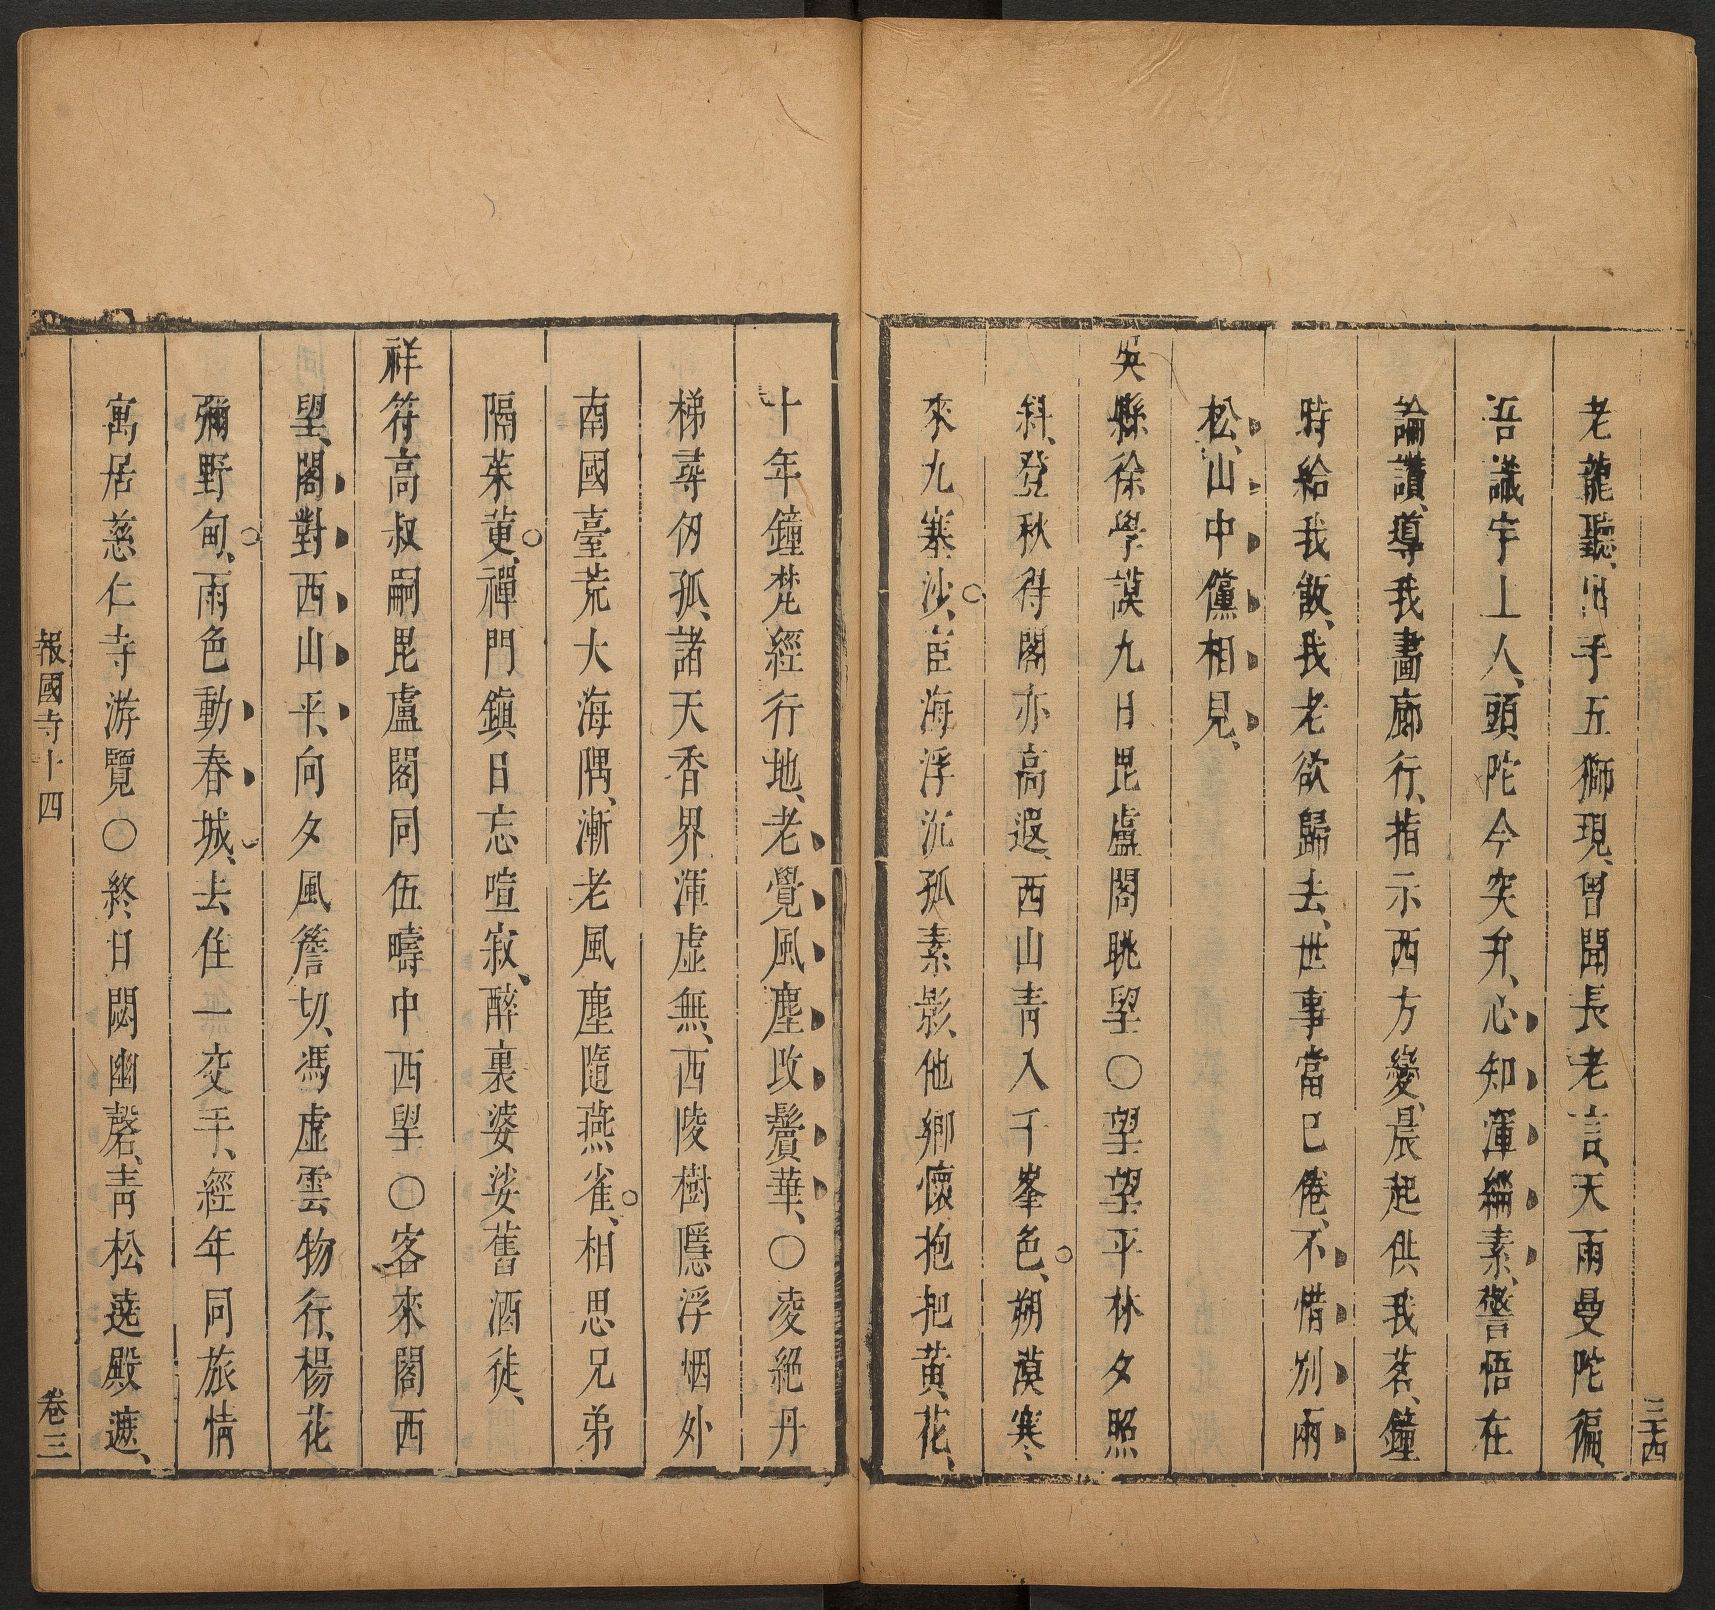 三十四
老龍聽出手五獅現曾聞長老言天雨曼陀徧
吾議宇上人頭陀今突弁心知渾緇素警悟在
論讚導我畫廊行指示西方變晨起供我茗鐘
時給我飯我老欲歸去世事當已倦不惜別兩
松山中儻相見
吳縣徐學謨九日毘盧閣眺望〇望望平林夕照
斜登秋得閣亦高遐西山靑入千峯色朔漠寒
來九塞沙宦海浮沉孤素影他鄉懷抱把黃花
十年鐘梵經行地老覺風塵改鬢華〇凌絕丹
梯尋仞孤諸天香界渾虛無西陵樹隱浮烟外
南國臺荒大海隅漸老風塵隨燕雀相思兄弟
隔茱萸禪門鎮日忘喧寂醉裏婆娑舊酒徒
祥符高叔嗣毘盧閣同伍疇中西望〇客來閣西
望閣對西山平向夕風簷切馮虛雲物行楊花
彌野甸雨色動春城去住一交手經年同旅情
寓居慈仁寺游覽〇終日閟幽磬靑松遶殿遮
報國寺十四
卷三